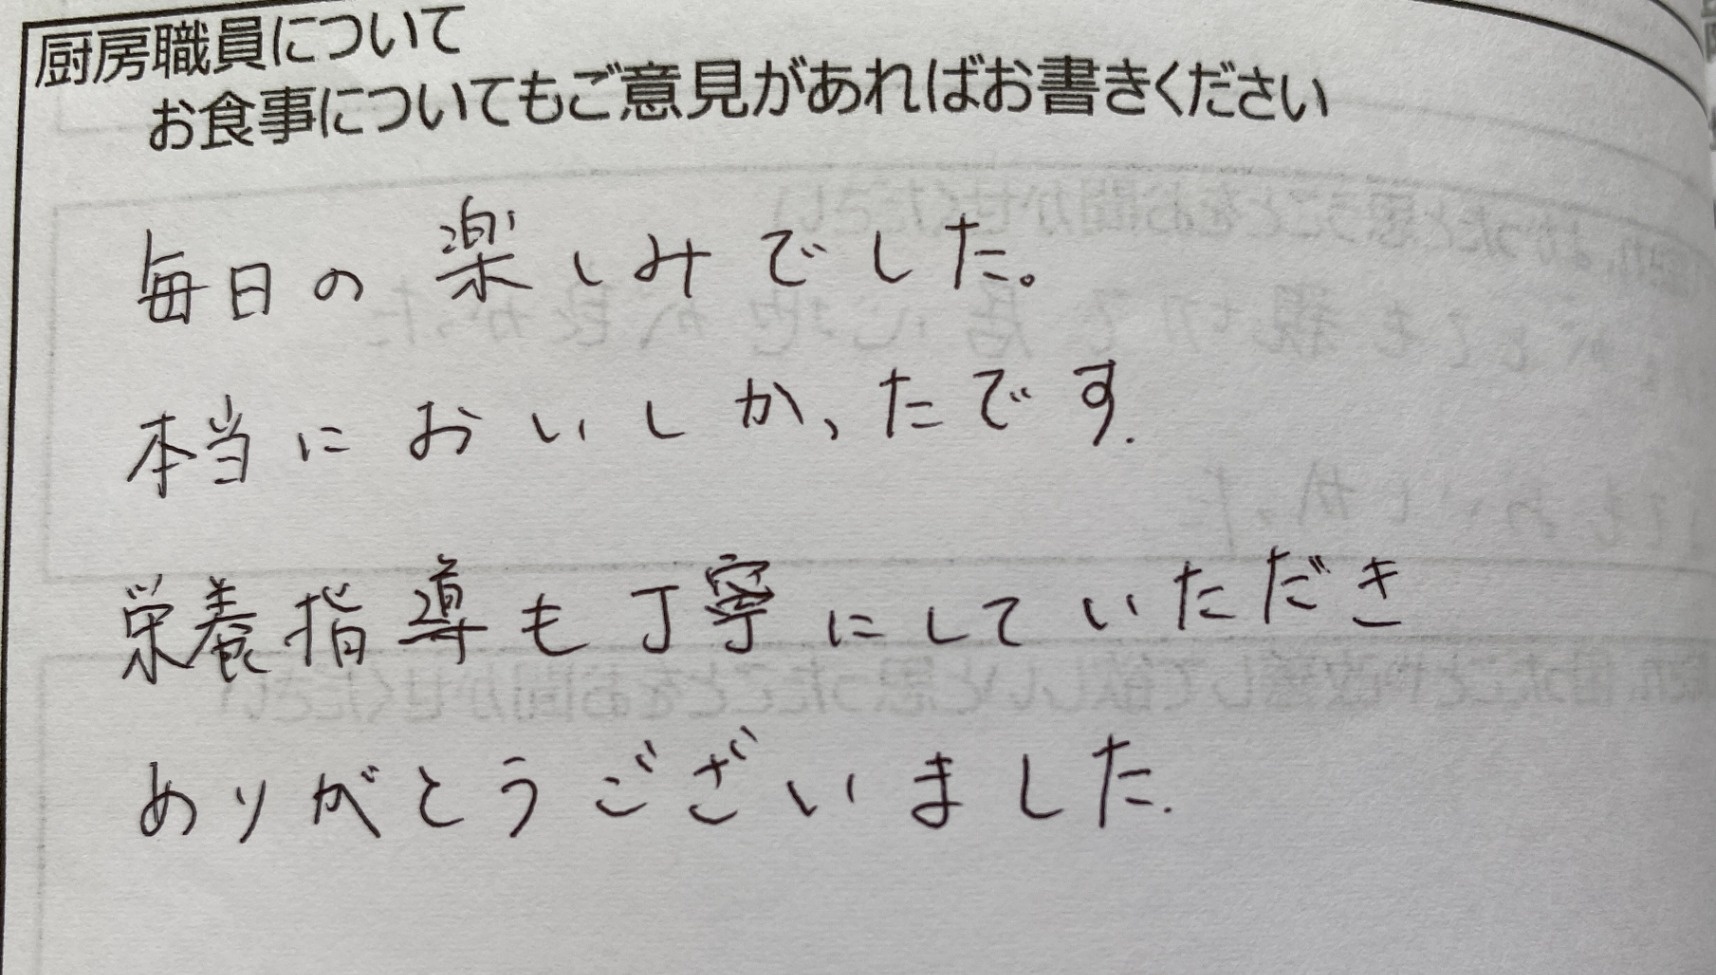 厨房職員について
お食事についてもご意見があればお書きください
毎日の楽しみでした。
本当においしかったです.
栄養指導も丁寧にしていただき
ありがとうございました.